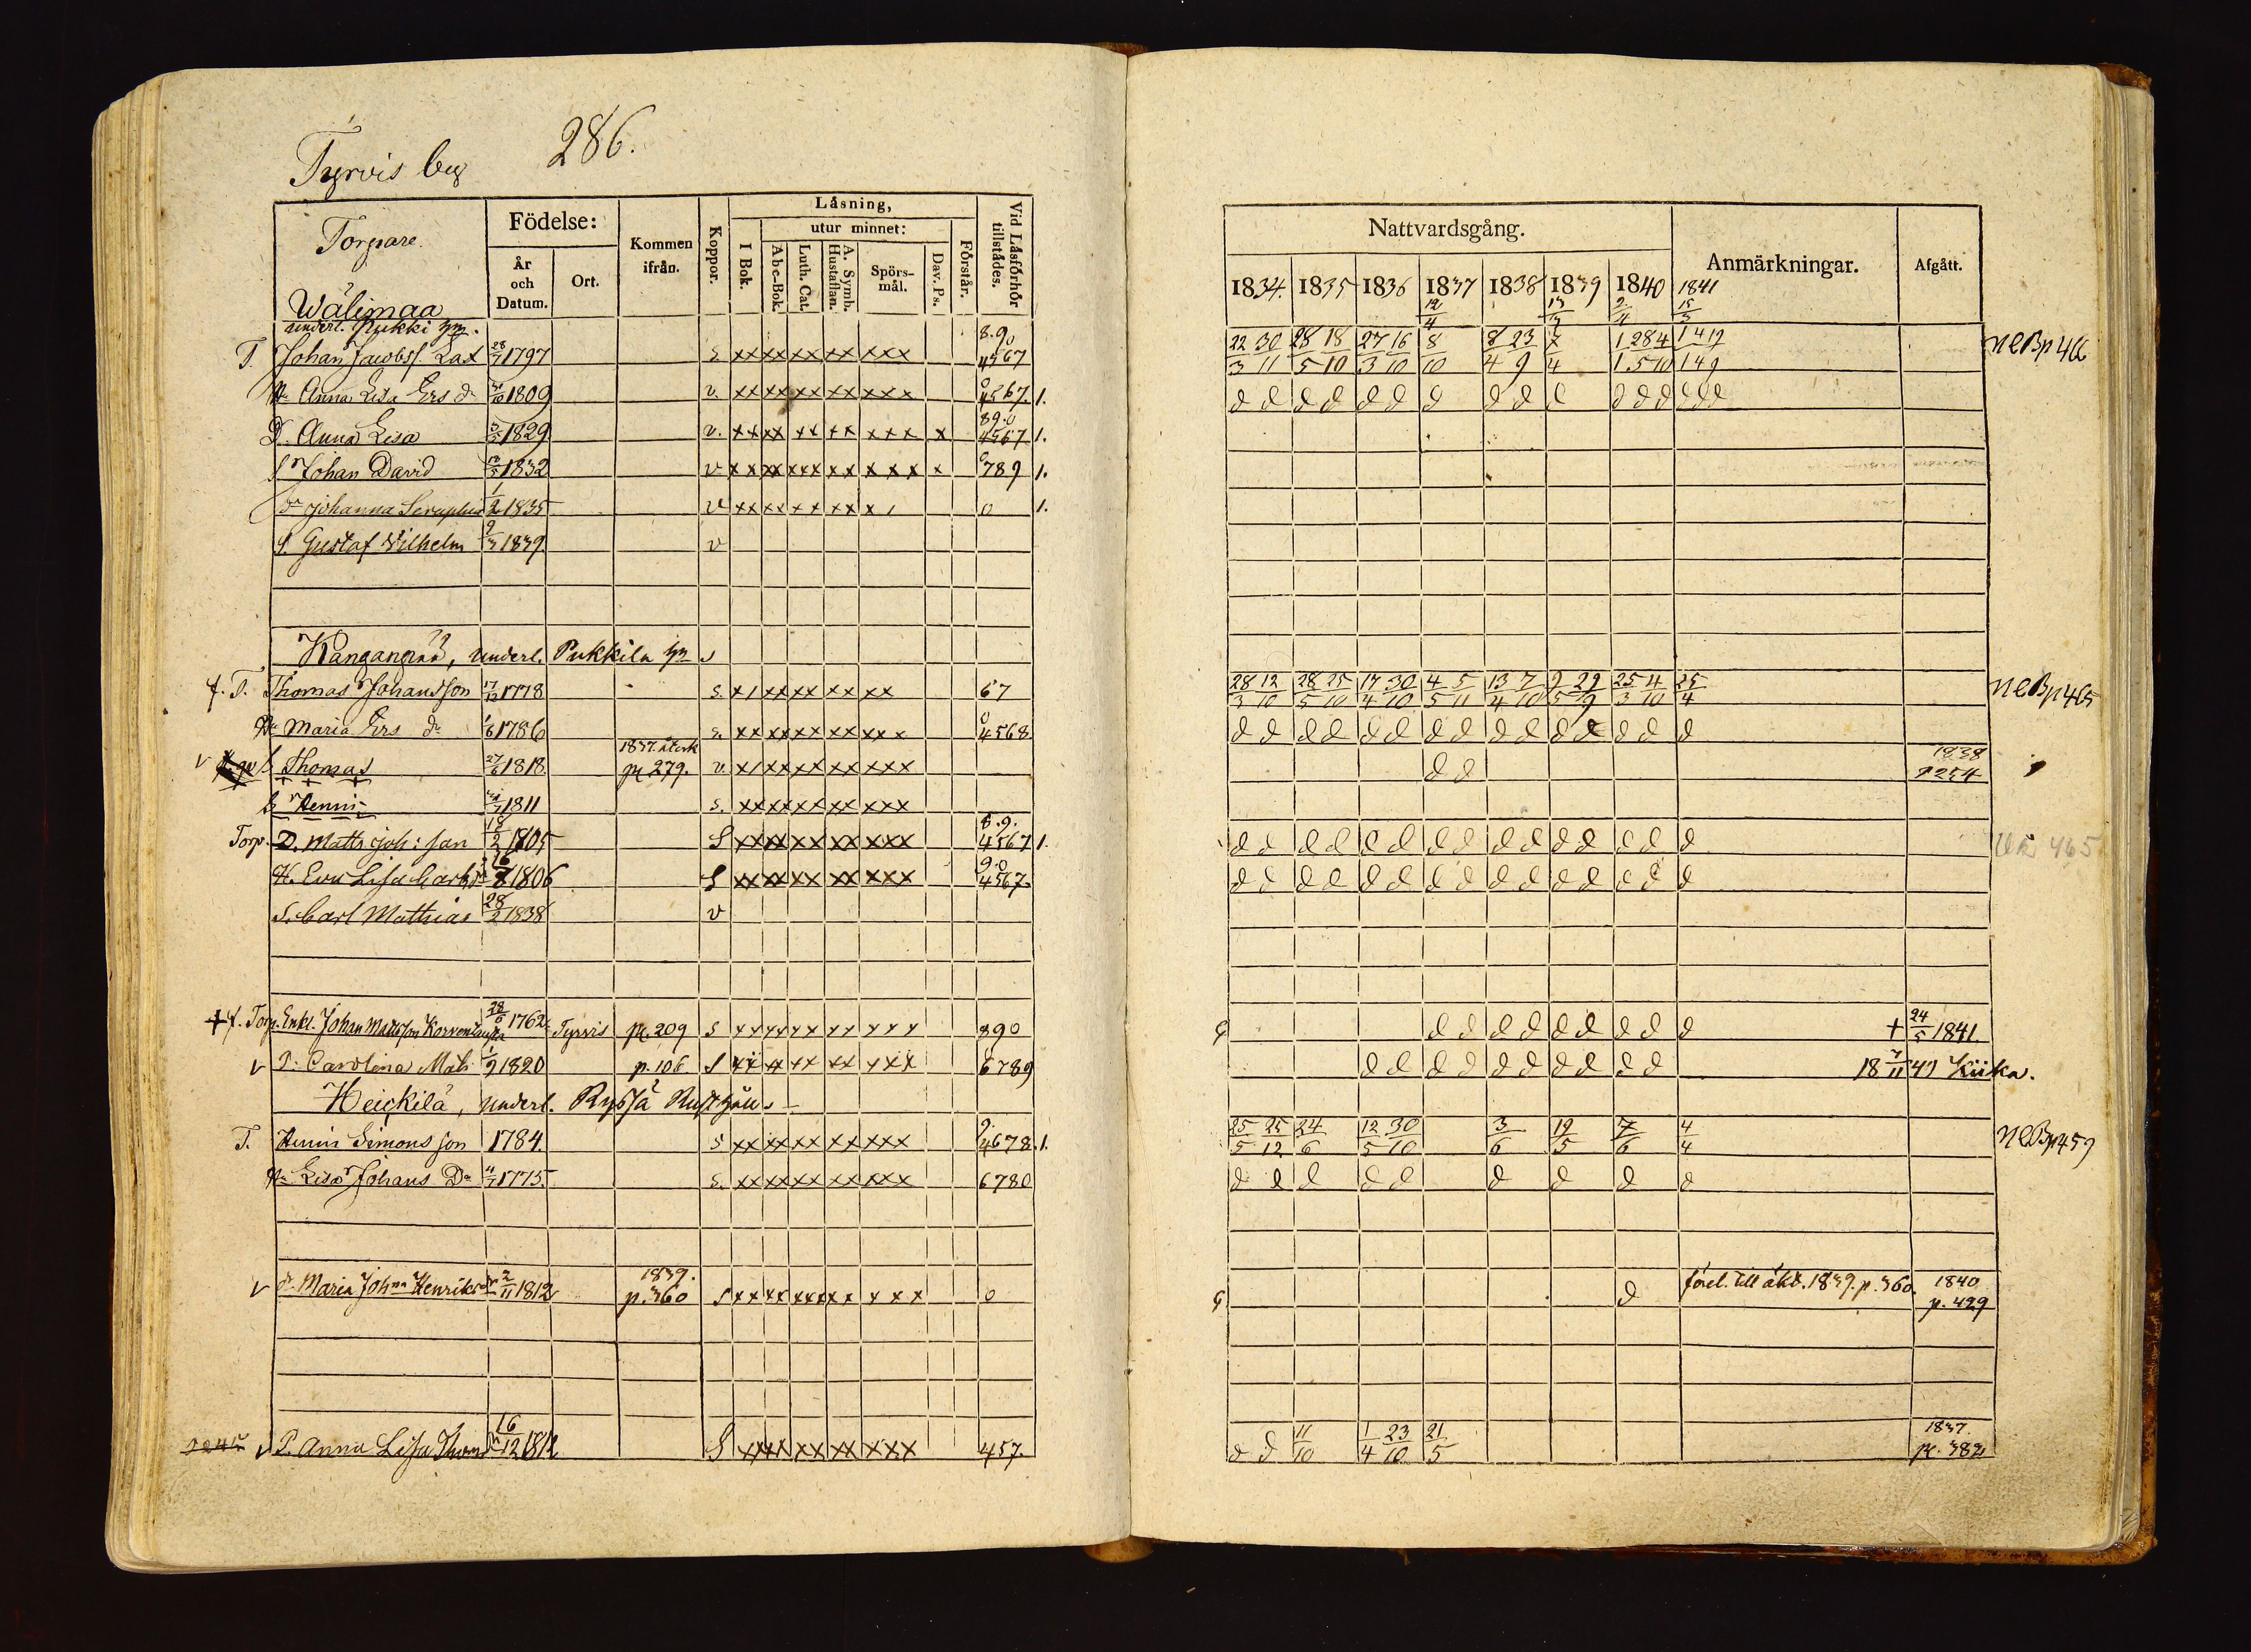 Tyrvis by 286.
Torpare.
Födelse:
År och Datum.
Ort.
Kommen ifrån.
Koppor.
Läsning,
I Bok.
utur minnet:
Abc-Bok.
Luth. Cat.
A. Symb. Hustaflan.
Spörsmål.
Dav. Ps.
Förstår.
Vid Läsförhör tillstädes.
Nattvardsgång.
Anmärkningar.
Afgått.
1834. 1835 1836 1837 1838 1839 1840 1841
Wälimaa
underl. Pukki
T. Johan Jacobss. Lax 28/7 1797 s. xx xx xx xx xxx 8.90 4567 22/3 30/11 28/5 18/10 27/3 16/10 8/10 8/4 23/9 7/4 N C B p 466
Anna Lisa Ers d. 1809 v. xx xx xx xx xxx 4567. 1.
D. Anna Lisa 1829 v. xx xx xx xx xxx x 890 4567 1.
S. Johan David 1832 v xx xx xxx xx xxx x 789 1.
Johanna Seraphia 1/2 1835 v xx xx xx xx x 0 1.
S. Gustaf Wilhelm 9/3 1839 v
Kanganpää, underl. Pukkila
f. T. Thomas Johansson 17/12 1778 s. x/ xx xx xx xx 67 28/3 12/10 28/5 25/10 17/4 30/10 4/5 5/11 13/4 7/10 9/5 29/9 25/3 4/10 25/4 N C B p 465
Maria Ers d. 1786 s. xx xx xx xx xxx 4568
Thomas 27/6 1818. 1837 återk p. 279. v. x/ xx xx xx xxx 1838 p 254
Henric 1811 s. xx xx xx xx xxx
Torp. D. Matts Joh: son 18/2 1805 S xx xx xx xx xxx 8.9. 4567 1.
H. Eva Lisa Carls dr 16/8 1806 S xx xx xx xx xxx 9.0 4567.
S. Carl Mathias 28/2 1838 v
+ f. Torp. Enkl. Johan Mattsson Korventausta 28/6 1762 Tyrvis p. 209 s xx xx xx xx xxx 890 + 24/5 1841.
v P. Carolina Mats 1/9 1820 p. 106. s xx xx xx xx xxx 6789 18 7/11 41 Kiika.
Heickilä, underl. Ryssä Rusthåll
T. Henric Simons son 1784. s xx xx xx xx xxx 9. 4678. 1. 25/5 25/12 24/6 12/5 30/10 3/6 19/5 7/6 4/4 N C B p 459
Lisa Johans Dr 1775. s. xx xx xx xx xxx 6780
v Maria Johna Henriksdr 2/11 1812 1839. p. 360 s xx xx xx xx xxx 0 förel. till äkt. 1839. p. 360. 1840 p. 429
v P. Anna Lisa Thoms dr 16/12 1812 S xx xx xx xx xxx 457. 11/10 1/4 23/10 21/5 1837. p. 382